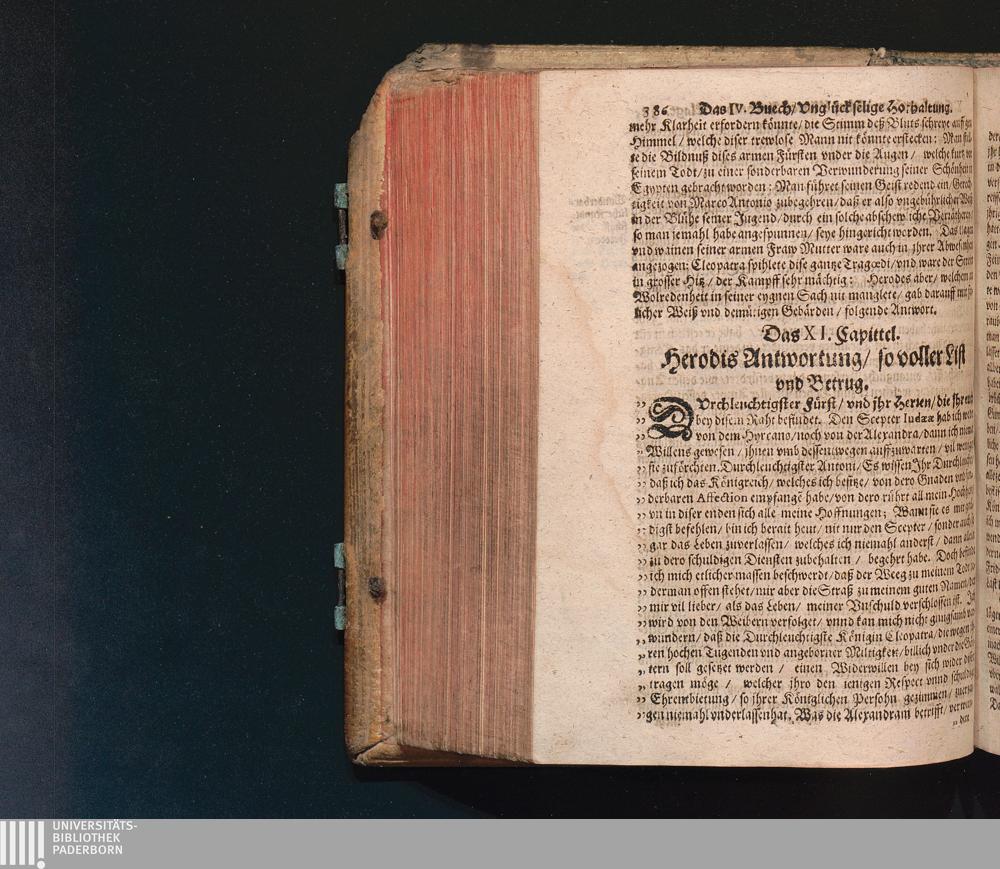 386 Das IV. Buech/ Vnglückselige Hofhaltung.
mehr Klarheit erfordern könnte/ die Stimm deß Bluts schreye auff gen
Himmel/ welche diser trewlose Mann nit könnte erstecken: Man stel-
te die Bildnuß dises armen Fürsten vnder die Augen/ welche kurtz vor
seinem Todt/ zu einer sonderbaren Verwunderung seiner Schönheit in
Egypten gebracht worden: Man führet seinen Geist redend ein/ Gerech-
tigkeit von Marco Antonio zubegehren/ daß er also vngebührlicher Weiß
in der Blühe seiner Jugend/ durch ein solche abschewliche Verrätherey/
so man jemahl habe angespunnen/ seye hingericht worden. Das klagen
vnd wainen seiner armen Fraw Mutter ware auch in jhrer Abwesenheit
angezogen: Cleopatra spihlete dise gantze Tragœdi/ vnd ware der Streit
in grosser Hitz/ der Kampff sehr mächtig: Herodes aber/ welchem es
Wolredenheit in seiner eygnen Sach nit manglete/ gab darauff mit
licher Weiß vnd demütigen Gebärden/ folgende Antwort.
Das XI. Capittel.
Herodis Antwortung/ so voller List
vnd Betrug.
DVrchleuchtigster Fürst/ vnd jhr Herren/ die jhr euch
bey disem Raht befindet. Den Scepter Iudææ hab ich weder
von dem Hyrcano/ noch von der Alexandra/ dann ich niemal
Willens gewesen/ jhnen vmb dessentwegen auffzuwarten/ vil weniger
sie zuförchten. Durchleuchtigster Antoni/ Es wissen Jhr Durchleucht
daß ich das Königreich/ welches ich besitze/ von dero Gnaden vnd son-
derbaren Affection empfangē habe/ von dero rührt all mein Hochheit
vn in diser enden sich alle meine Hoffnungen; Wann sie es mir gnä-
digst befehlen/ bin ich berait heut/ nit nur den Scepter/ sonder auch so
gar das Leben zuverlassen/ welches ich niemahl anderst/ dann allein
zu dero schuldigen Diensten zubehalten/ begehrt habe. Doch befinde
ich mich etlicher massen beschwerdt/ daß der Weeg zu meinem Todt je-
derman offen stehet/ mir aber die Straß zu meinem guten Namen/ der
mir vil lieber/ als das Leben/ meiner Vnschuld verschlossen ist. Ich
wird von den Weibern verfolget/ vnnd kan mich nicht gnugsamb ver-
wundern/ daß die Durchleuchtigste Königin Cleopatra/ die wegen jh-
ren hochen Tugenden vnd angeborner Miltigkeit/ billich vnder die Göt-
tern soll gesetzet werden/ einen Widerwillen bey sich wider diesen
tragen möge/ welcher jhro den ienigen Respect vnnd schuldige
Ehrenbietung/ so jhrer Königlichen Persohn gezimmen/ zuerzai-
gen niemahl vnderlassen hat. Was die Alexandram betrifft/ verwun-
dere
UNIVERSITÄTS-
BIBLIOTHEK
PADERBORN